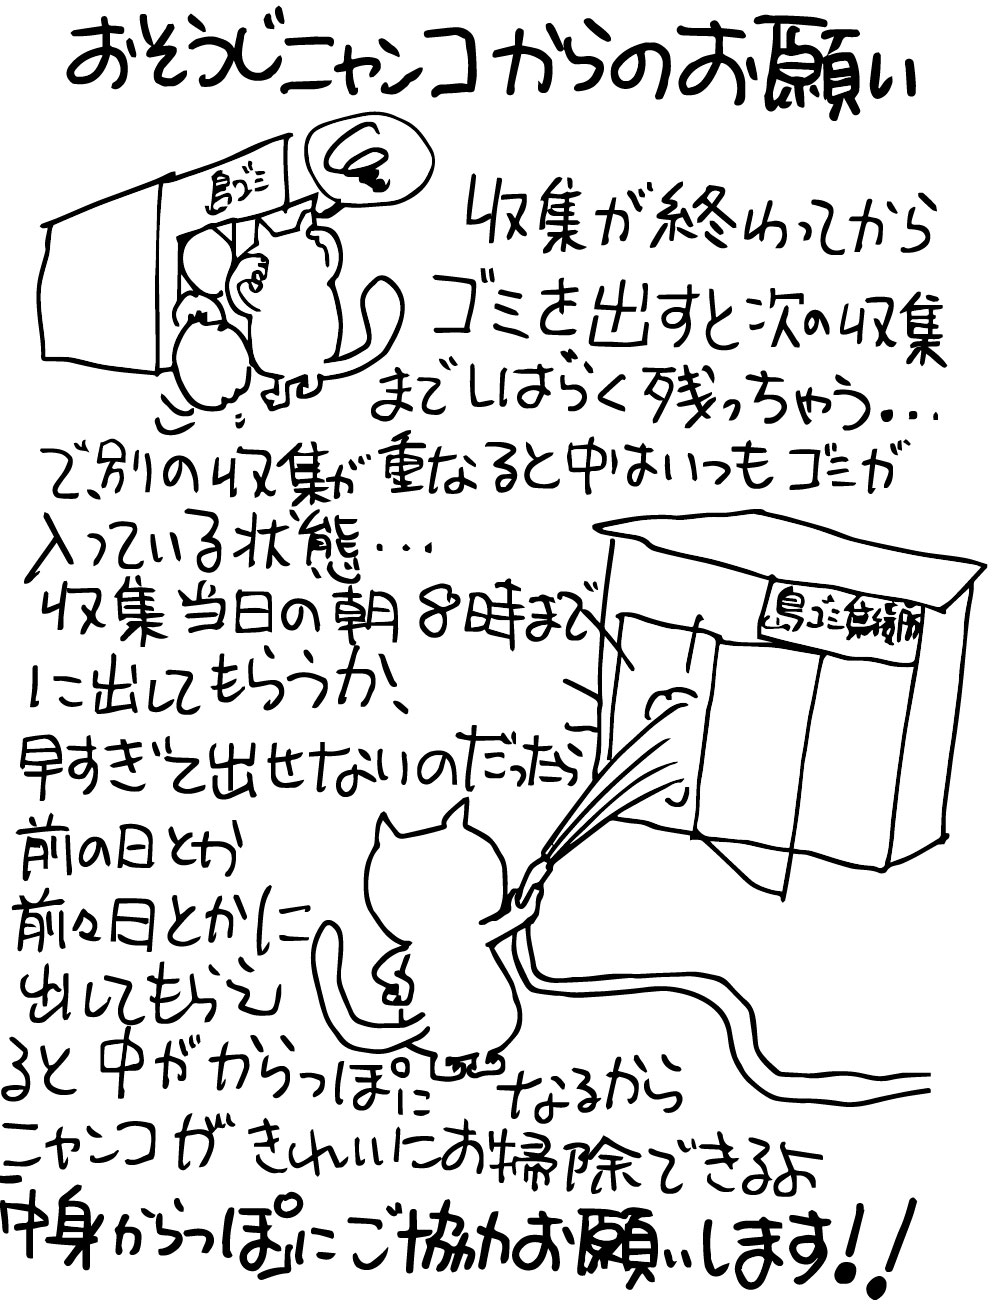 おそうじニャンコからのお願い
島ゴミ
収集が終わってから
ゴミを出すと次の収集
までしばらく残っちゃう・・・
で、別の収集が重なると中はいつもゴミが
入っている状態・・・
島ゴミ集積所
収集当日の朝8時まで
に出してもらうか、
早すぎて出せないのだったら
前の日とか
前々日とかに
出してもらえ
ると中がからっぽになるから
ニャンコがきれいにお掃除できるよ
中身からっぽにご協力お願いします!!